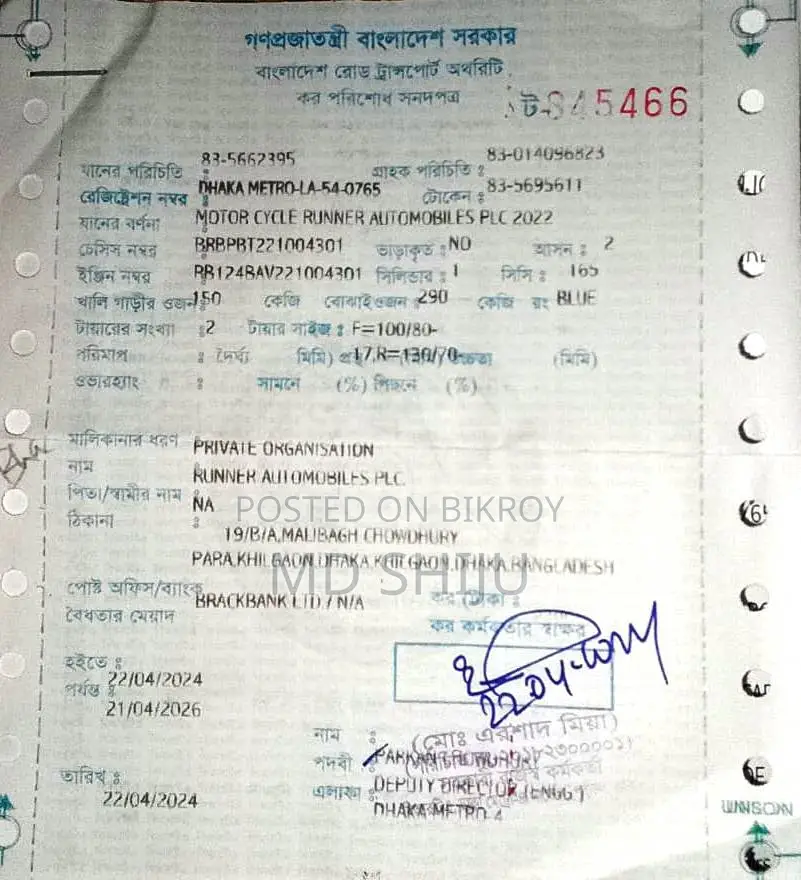 গণপ্রজাতন্ত্রী বাংলাদেশ সরকার
বাংলাদেশ রোড ট্রান্সপোর্ট অথরিটি
কর পরিশোধ সনদপত্র
ট-845466
যানের পরিচিতি : 83-5662395 গ্রাহক পরিচিতি : 83-014096823
রেজিষ্ট্রেশন নম্বর : DHAKA METRO-LA-54-0765 টোকেন : 83-5695611
যানের বর্ণনা MOTOR CYCLE RUNNER AUTOMOBILES PLC 2022
চেসিস নম্বর BRBPBT221004301 ভাড়াকৃত : NO আসন : 2
ইঞ্জিন নম্বর RB124BAV221004301 সিলিন্ডার : 1 সিসি : 165
খালি গাড়ীর ওজন 150 কেজি বোঝাইওজন : 290 কেজি রং BLUE
টায়ারের সংখ্যা : 2 টায়ার সাইজ : F=100/80-
পরিমাপ : দৈর্ঘ্য (মিমি) 17,R=130/70- (মিমি)
ওভারহ্যাং : সামনে (%) পিছনে (%)
মালিকানার ধরণ PRIVATE ORGANISATION
নাম RUNNER AUTOMOBILES PLC.
পিতা/স্বামীর নাম NA
ঠিকানা : 19/B/A,MALIBAGH CHOWDHURY
PARA,KHILGAON,DHAKA,KHILGAON,DHAKA,BANGLADESH
POSTED ON BIKROY
MD SHIJU
পোষ্ট অফিস/ব্যাংক BRACKBANK LTD./ N/A
বৈধতার মেয়াদ
কর কর্মকর্তার স্বাক্ষর
হইতে : 22/04/2024
পর্যন্ত : 21/04/2026
22.04
নাম : (মোঃ এরশাদ মিয়া)
পদবী
এলাকা : DEPUTY DIRECTOR (ENGG.)
DHAKA METRO-4
তারিখ : 22/04/2024